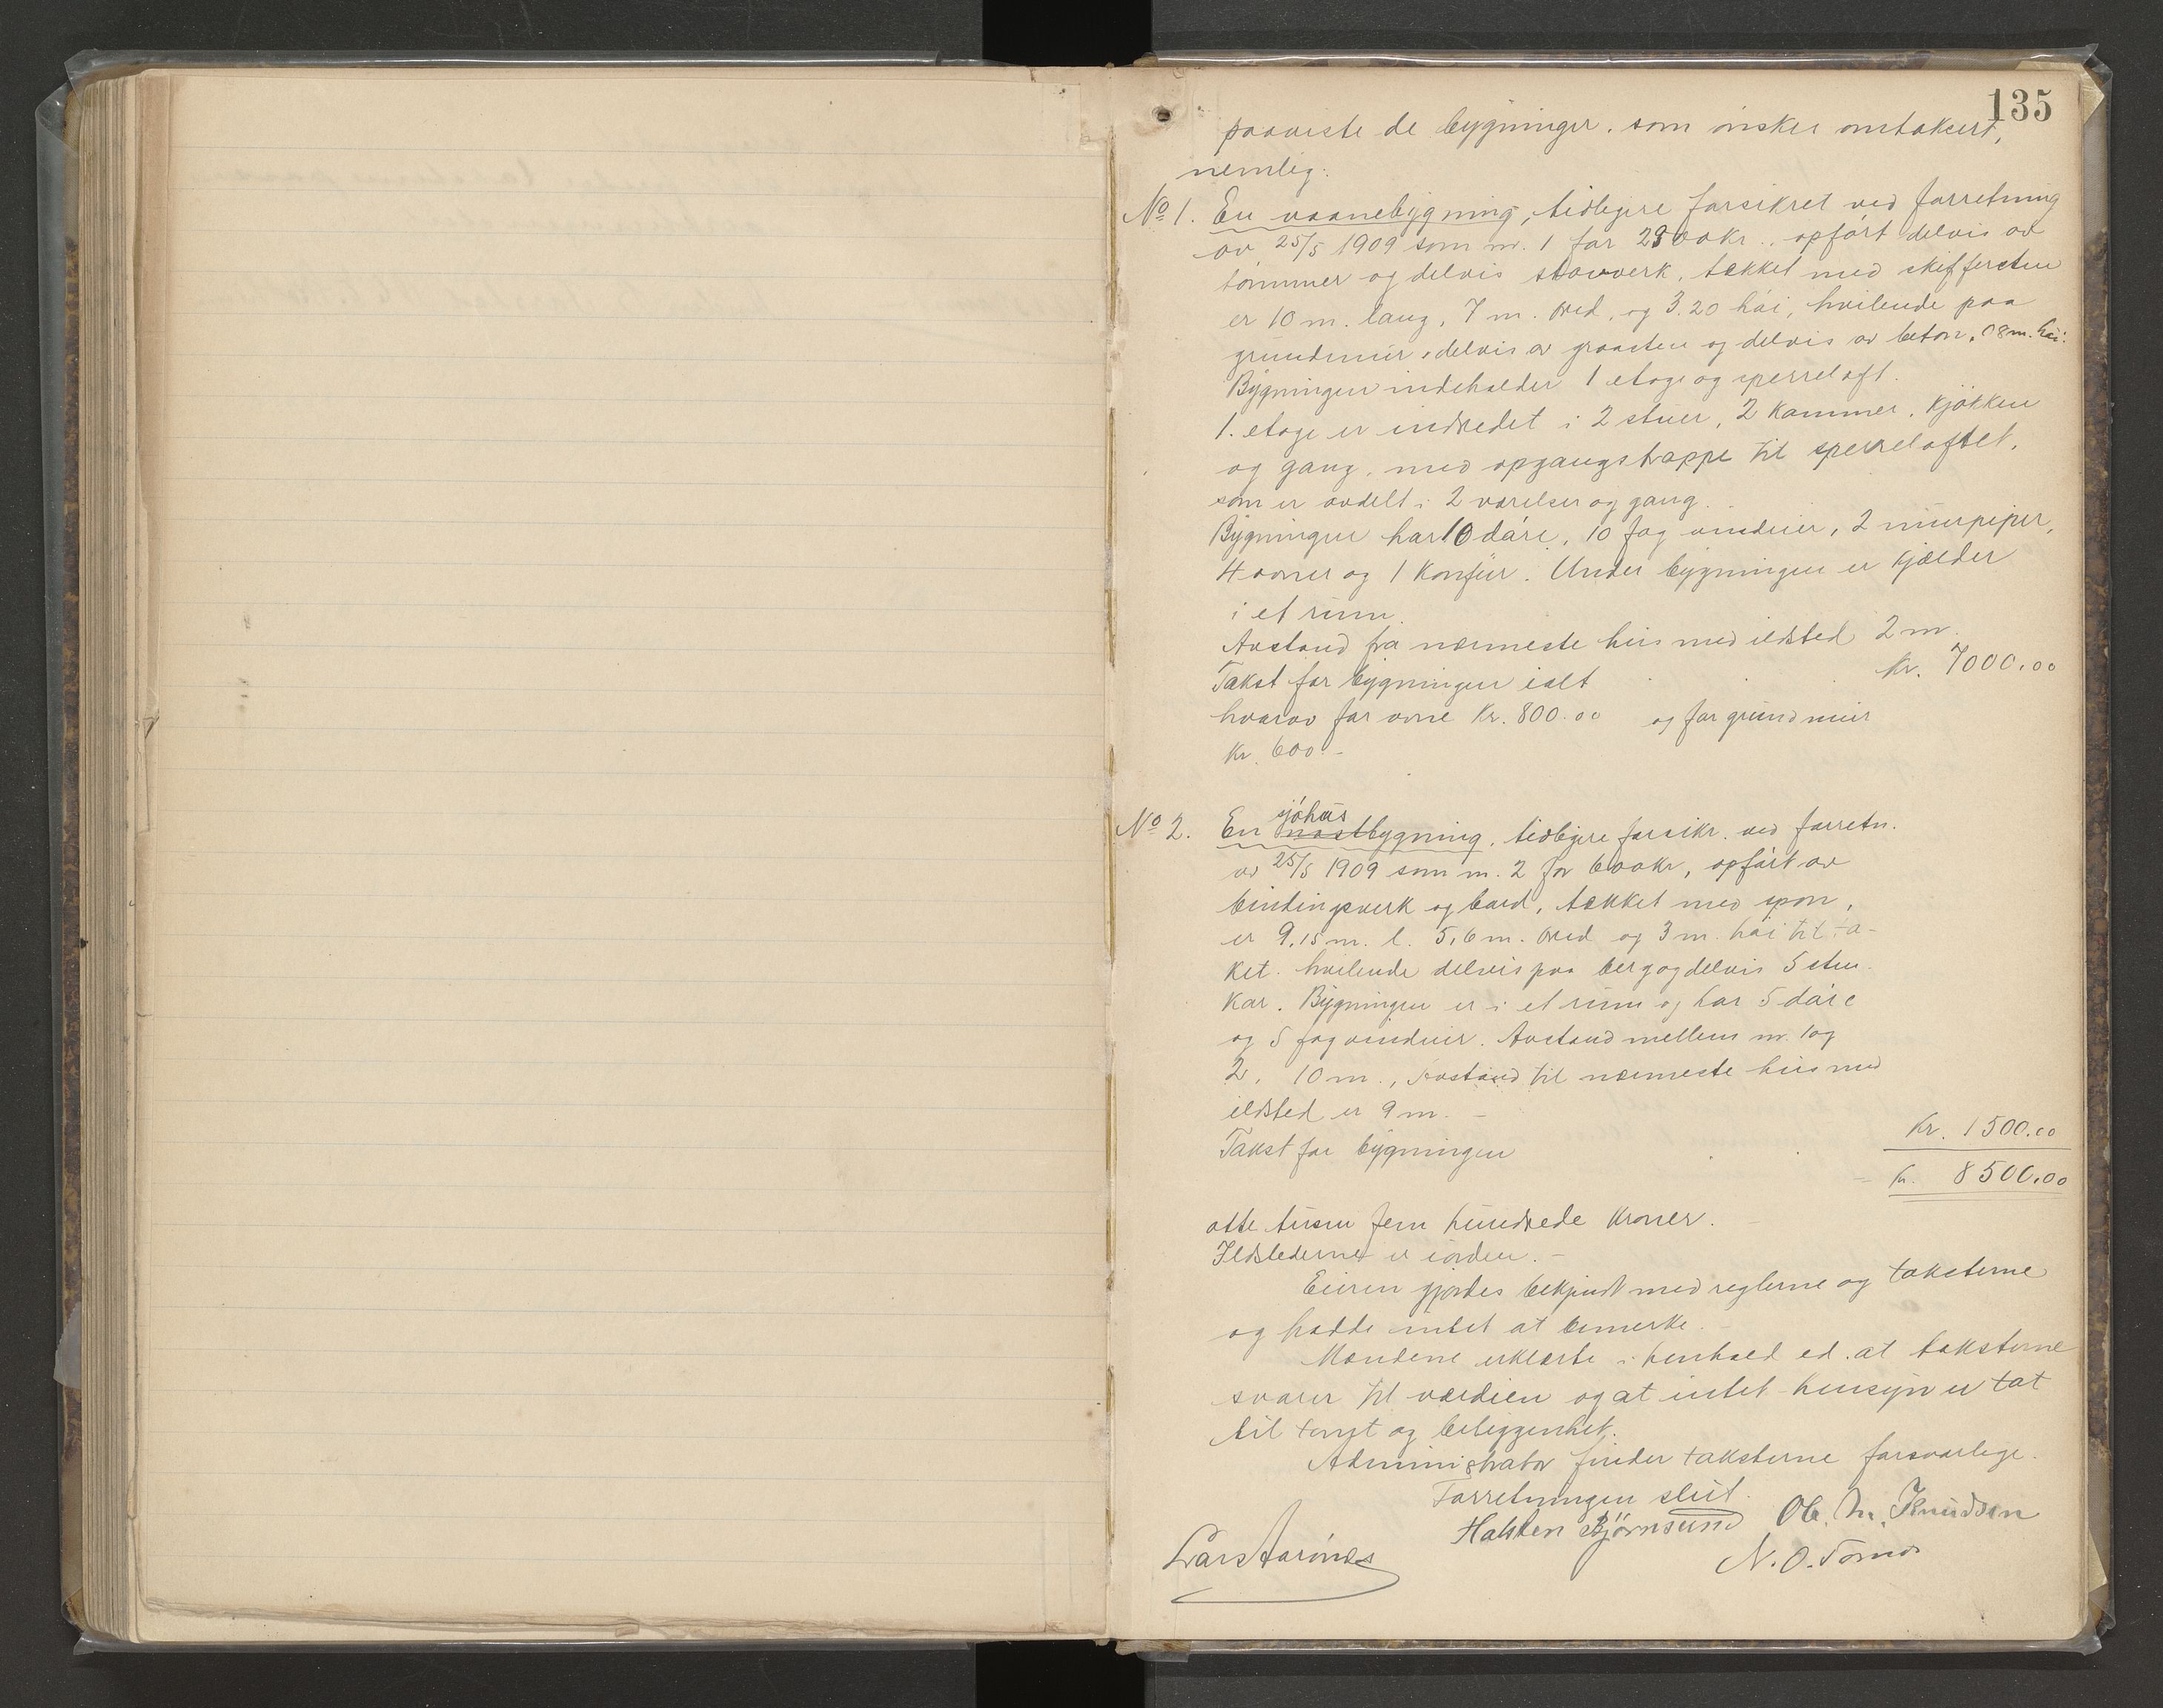 135
paaviste de bygninger, som ønskes omtaksert,
nemlig:
No 1. En vaanebygning, tidligere forsikret ved forretning
av 25/5 1909 som nr. 1 for 2900 kr., opført delvis av
tømmer og delvis stavverk, tækket med skiffersten
er 10 m. lang, 7 m. bred, og 3.20 høi, hvilende paa
grundmur, delvis av graasten og delvis av beton, 0,8 m. høi.
Bygningen indeholder 1 etage og sperreloft.
1. etage er indredet i 2 stuer, 2 kammer, kjøkken
og gang, med opgangstrappe til sperreloftet,
som er avdelt i 2 værelser og gang.
Bygningen har 10 døre, 10 fag vinduer, 2 murpiper,
4 ovner og 1 komfur. Under bygningen er kjælder
i et rum.
Avstand fra nærmeste hus med ildsted 2 m.
Takst for bygningen ialt kr. 7000.00
hvorav for ovne kr. 800.00 og for grundmur
kr. 600.-
sjøhus
No 2. En nostbygning, tidligere forsikr. ved forretn.
av 25/5 1909 som nr. 2 for 600 kr, opført av
bindingsverk og bord, tækket med spon,
er 9,15 m. l. 5,6 m. bred og 3 m. høi til ta-
ket. hvilende delvis paa berg og delvis 5 sten-
kar. Bygningen er i et rum og har 5 døre
og 5 fag vinduer. Avstand mellem nr. 1 og
2, 10 m., Avstand til nærmeste hus med
ildsted er 9 m. -
Takst for bygningen kr. 1500.00
kr. 8500.00
otte tusen fem hundrede kroner.
Ildstederne er iorden. -
Eieren gjordes bekjendt med reglerne og taksterne
og hadde intet at bemerke.
Mændene erklærte i henhold ed. at taksterne
svarer til værdien og at intet hensyn er tat
til tomt og beliggenhet.
Administrator finder taksterne forsvarlige.
Forretningen slut.
Halsten Bjørnsund Ole M. Knudsen
Lars Aarønes N. O. Tornes